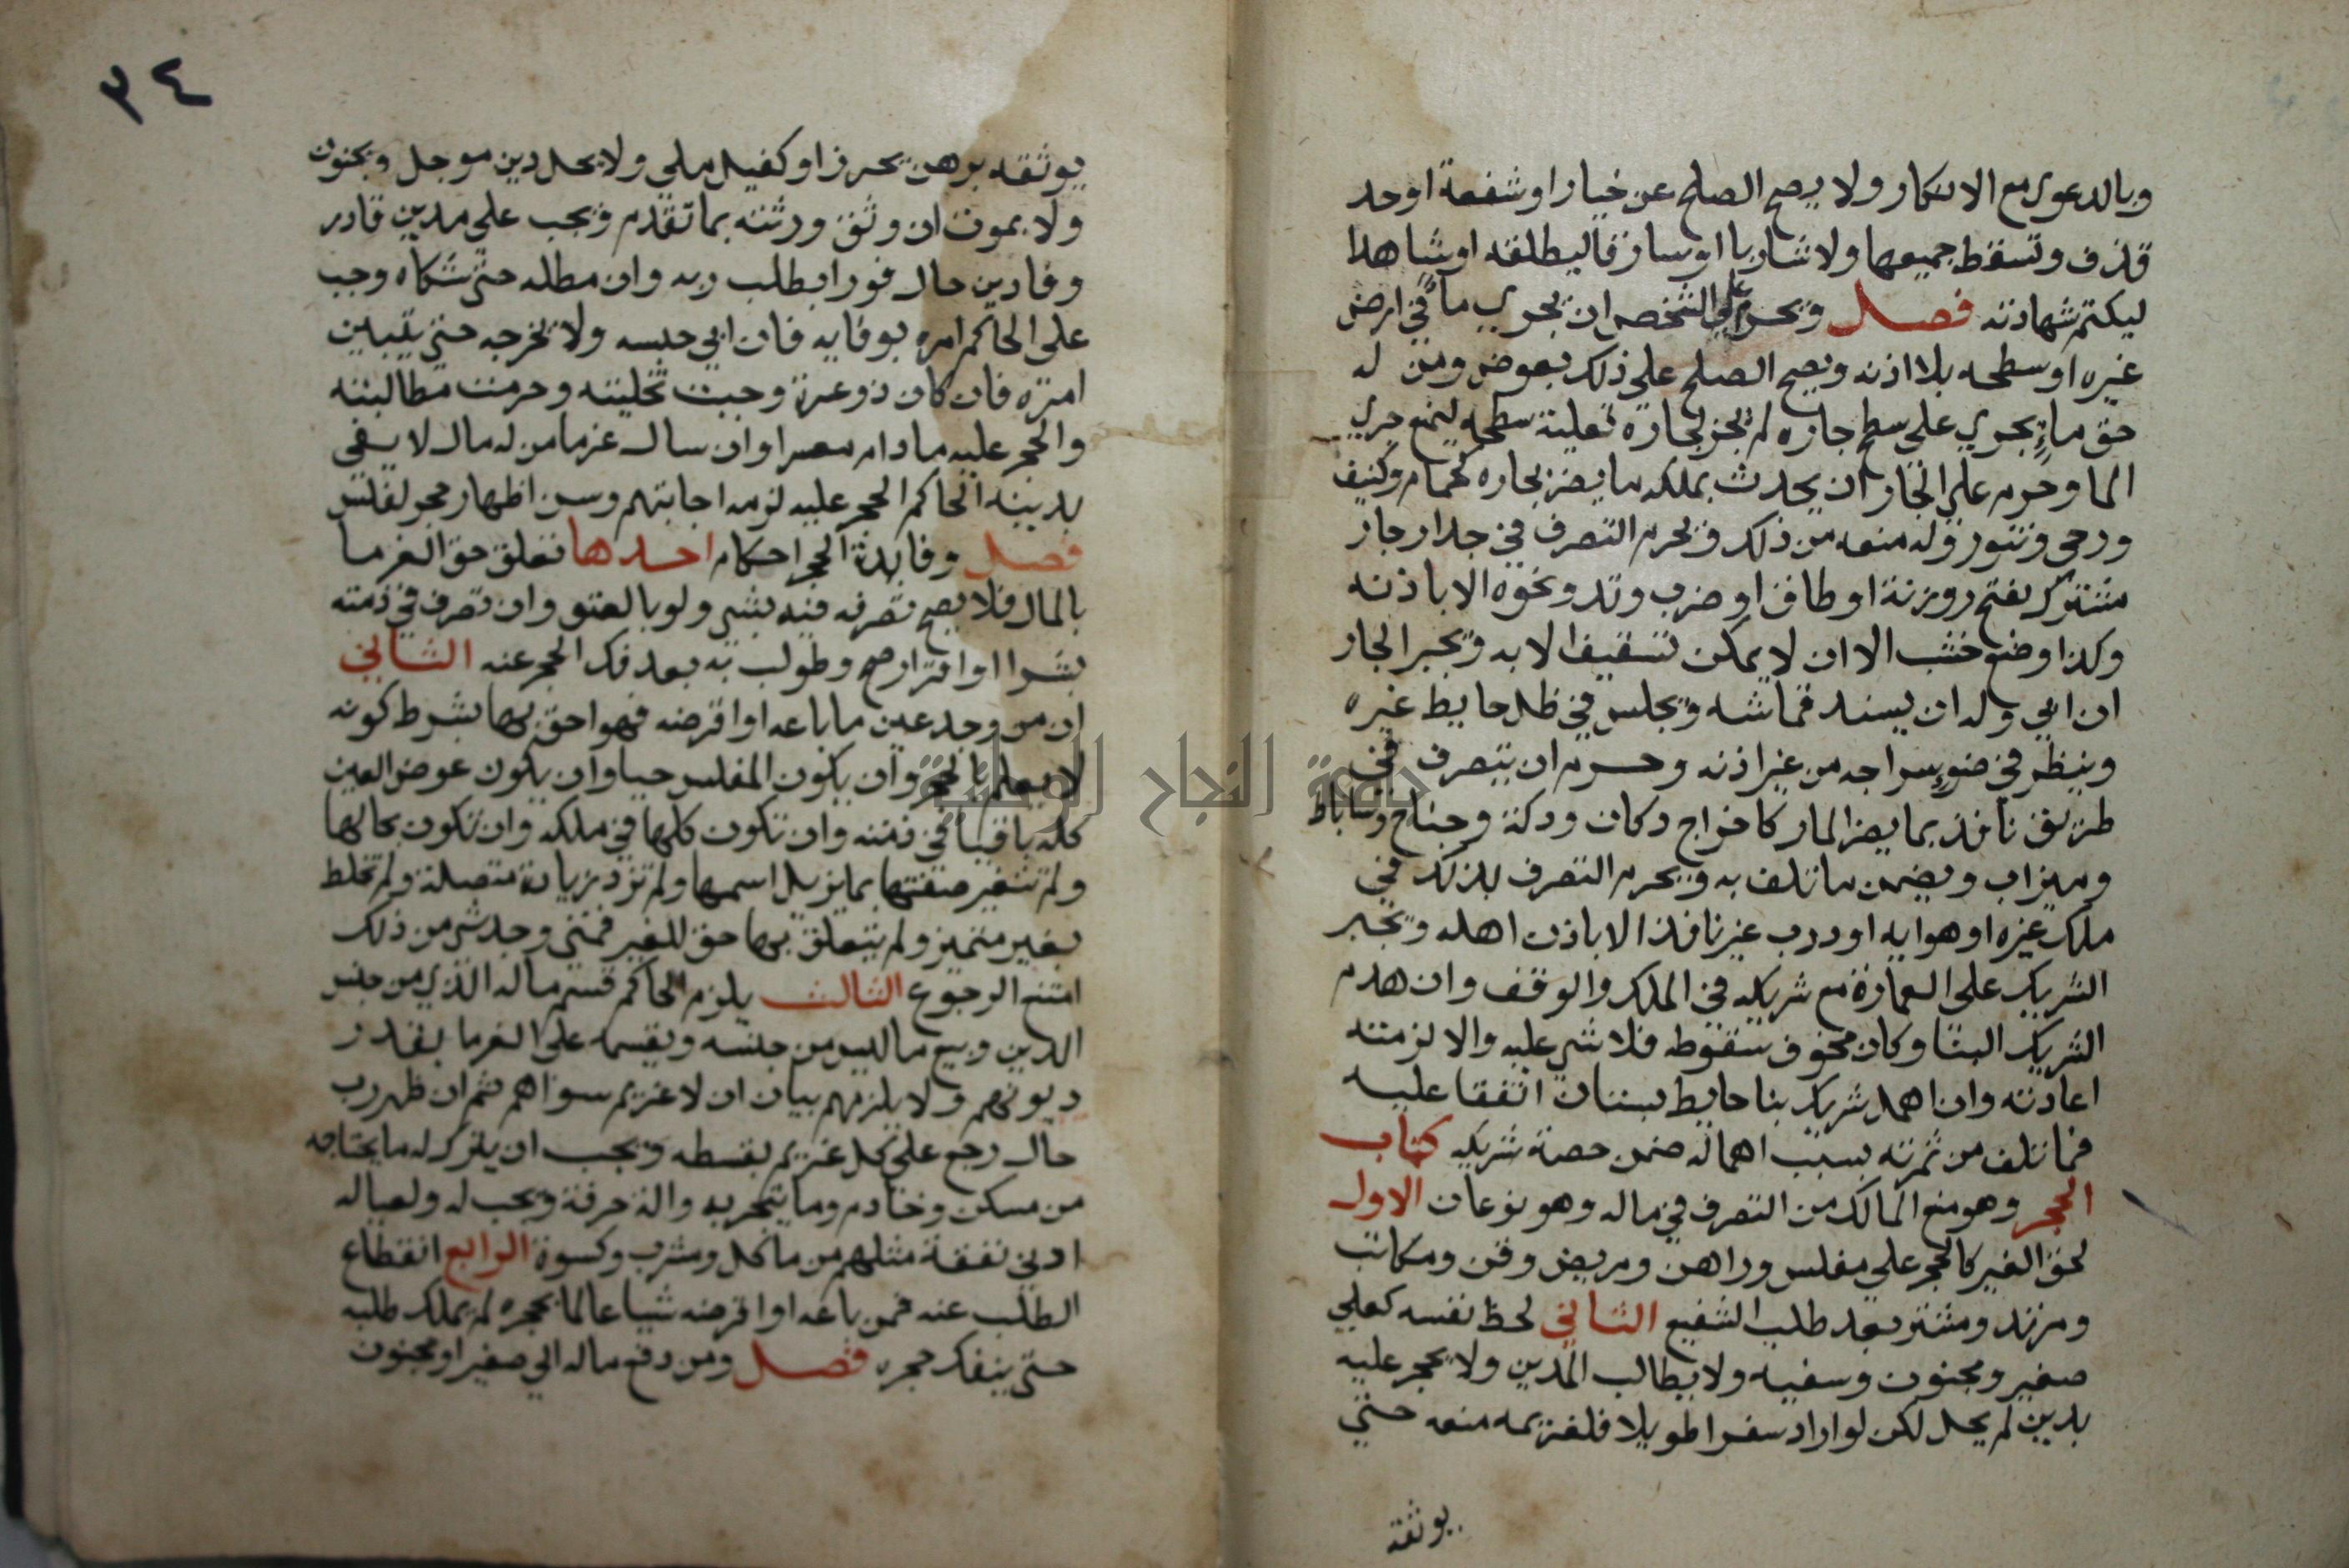 وبالدعوي مع الانكار ولا يصح الصلح عن خيار او شفعة او حد
قذف وتسقط جميعها ولا شاربا او سارقا ليطلقه او شاهدا
ليكتم شهادته فصل ويحرم علي الشخص ان يجري ماء في ارض
غيره او سطحه بلا اذنه ويصح الصلح علي ذلك بعوض ومن له
حق ماء يجري علي سطح جاره لم يجز لجاره تعلية سطحه ليمنع جري
الما وحرم علي الجار ان يحدث بملكه ما يضر بجاره كحمام وكنيف
ورحي وتنور وله منعه من ذلك ويحرم التصرف في جدار جار
مشترك بفتح روزنة او طاق او ضرب وتد ونحوه الا باذنه
وكذا وضع خشب الا ان لا يمكن تسقيف الا به ويجبر الجار
ان ابي وله ان يسند قماشه ويجلس في ظل حايط غيره
وينظر في ضوء سراجه من غير اذنه وحرم ان يتصرف في
طريق نافذ بما يضر المار كاخراج دكان ودكة وجناح وساباط
وميزاب ويضمن ما تلف به ويحرم التصرف بذلك في
ملك غيره او هوايه او درب غير نافذ الا باذن اهله ويجبر
الشريك علي العمارة مع شريكه في الملك والوقف وان هدم
الشريك البنا وكان مخوف سقوطه فلا شي عليه والا لزمته
اعادته وان اهمل شريك بنا حايط بستان اتفقا عليه
فما تلف من ثمرته بسبب اهماله ضمن حصة شريكه كتاب
الحجر وهو منع المالك من التصرف في ماله وهو نوعان الاول
لحق الغير كالحجر علي مفلس وراهن ومريض وقن ومكاتب
ومرتد ومشتر بعد طلب الشفيع الثاني لحظ نفسه كعلي
صغير ومجنون وسفيه ولا يطالب المدين ولا يحجر عليه
بدين لم يحل لكن لو اراد سفرا طويلا فلغريمه منعه حتي
يوثقه
٣٤
يوثقه برهن يحرز او كفيل ملي ولا يحل دين موجل وبجنون
ولا بموت ان وثق ورثته بما تقدم ويجب علي مدين قادر
وفا دين حال فورا بطلب ربه وان مطله حتي شكاه وجب
علي الحاكم امره بوفايه فان ابي حبسه ولا يخرجه حتي يتبين
امره فان كان ذو عسرة وجبت تخليته وحرمت مطالبته
والحجر عليه ما دام معسرا وان سال غرما من له مال لا يفي
بدينه الحاكم الحجر عليه لزمه اجابتهم وسن اظهار حجر لفلس
فصل وفايدة الحجر احكام احدها تعلق حق الغرما
بالمال فلا يصح تصرفه فيه بشي ولو بالعتق وان تصرف في ذمته
بشرا او اقرار صح وطولب به بعد فك الحجر عنه الثاني
ان من وجد عين ما باعه او اقرضه فهو احق بها بشرط كونه
لا يعلم بالحجر وان يكون المفلس حيا وان يكون عوض العين
كله باقيا في ذمته وان تكون كلها في ملكه وان تكون بحالها
ولم تتغير صفتها بما يزيل اسمها ولم تزد زيادة متصلة ولم تخلط
بغير متميز ولم يتعلق بها حق للغير فمتي وجد شي من ذلك
امتنع الرجوع الثالث يلزم الحاكم قسم ماله الذي من جنس
الدين وبيع ما ليس من جنسه ويقسمه علي الغرما بقدر
ديونهم ولا يلزمهم بيان ان لا غريم سواهم ثم ان ظهر رب
حال رجع علي كل غريم بقسطه ويجب ان يترك له ما يحتاجه
من مسكن وخادم وما يتجر به والة حرفة ويجب له ولعياله
ادني نفقة مثلهم من ماكل ومشرب وكسوة الرابع انقطاع
الطلب عنه فمن باعه او اقرضه شيا عالما بحجره لم يملك طلبه
حتي ينفك حجره فصل ومن دفع ماله الي صغير او مجنون
جامعة النجاح الوطنية